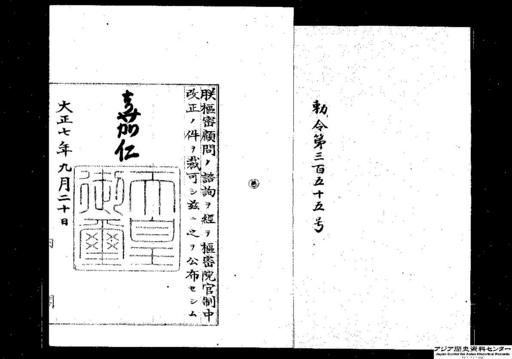 勅令第三百五十五号
朕枢密顧問ノ諮詢ヲ経テ枢密院官制中
改正ノ件ヲ裁可シ茲ニ之ヲ公布セシム
嘉仁
天皇
御璽
大正七年九月二十日
内閣
アジア歴史資料センター
Japan Center for Asian Historical Records